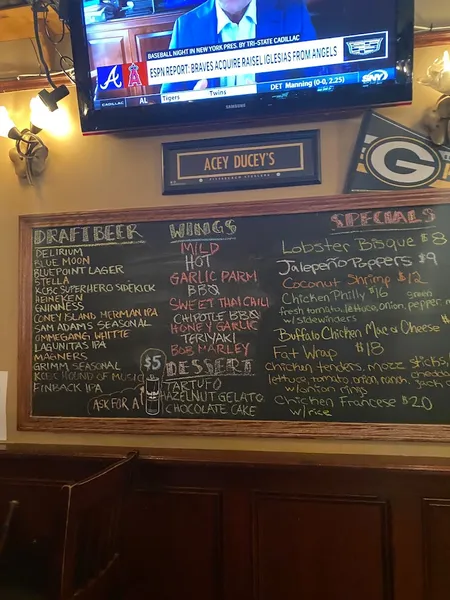 BASEBALL NIGHT IN NEW YORK PRES. BY TRI-STATE CADILLAC
ESPN REPORT: BRAVES ACQUIRE RAISEL IGLESIAS FROM ANGELS
CADILLAC
AL Tigers Twins DET Manning (0-0, 2.25) SNY
SAMSUNG
ACEY DUCEY'S
G
DRAFT BEER
DELIRIUM
BLUE MOON
BLUEPOINT LAGER
STELLA
KCBC SUPERHERO SIDEKICK
HEINEKEN
GUINNESS
CONEY ISLAND MERMAN IPA
SAM ADAMS SEASONAL
OMMEGANG WHITTE
LAGUNITAS IPA
MAGNERS
GRIMM SEASONAL
KCBC HOUND OF MUSIC
FINBACK IPA
ASK FOR A
$5
WINGS
MILD
HOT
GARLIC PARM
BBQ
SWEET THAI CHILI
CHIPOTLE BBQ
HONEY GARLIC
TERIYAKI
BOB MARLEY
DESSERT
TARTUFO
HAZELNUT GELATO
CHOCOLATE CAKE
SPECIALS
Lobster Bisque $8
Jalepeño Poppers $9
Coconut Shrimp $12
Chicken Philly $16
fresh tomato, lettuce, onion, pepper
w/sidewinders
Buffalo Chicken Mac & Cheese
Fat Wrap $18
chicken tenders, mozz sticks,
lettuce, tomato, onion, ranch, jack
w/onion rings
Chicken Francese $20
w/rice